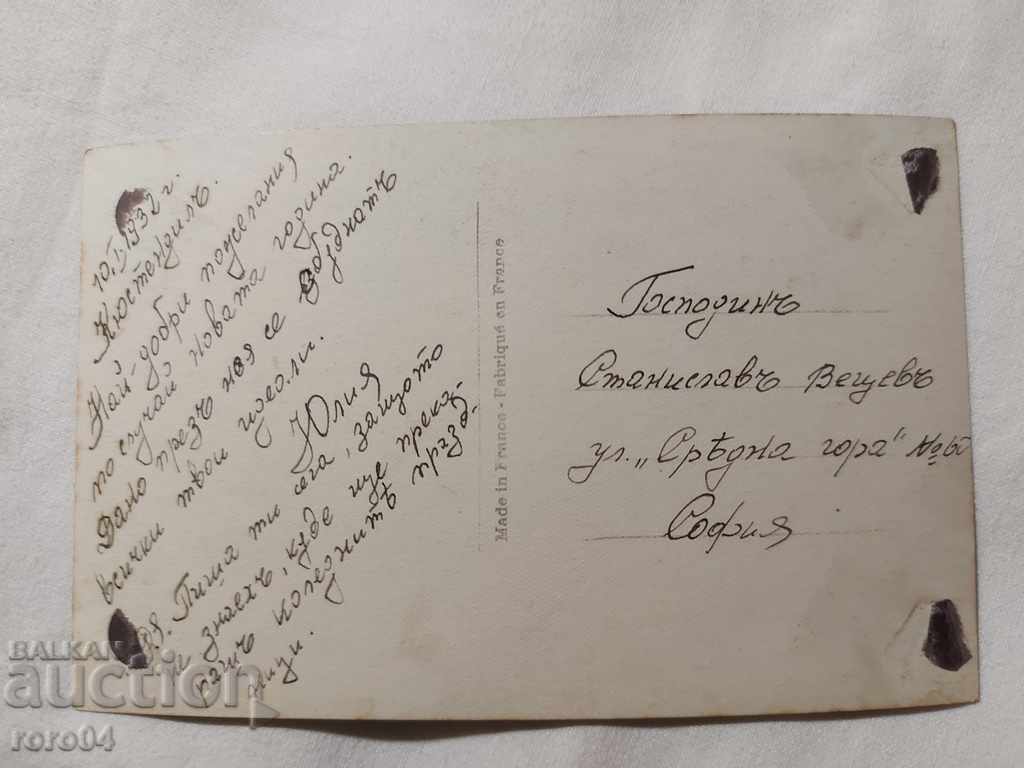 10.I.1932 г.
Кюстендилъ.
Най-добри пожелания
по случай новата година.
Дано презъ нея се сбѫднатъ
всички твои идеали.
Юлия
Пиша ти сега, защото
не знаехъ, кѫде ще прека-
рашъ коледнитѣ празд-
ници.
Made in France - Fabriqué en France
Господинъ
Станиславъ Вещевъ
ул. „Срѣдна гора" №
София
BALKAN
auction
roro04